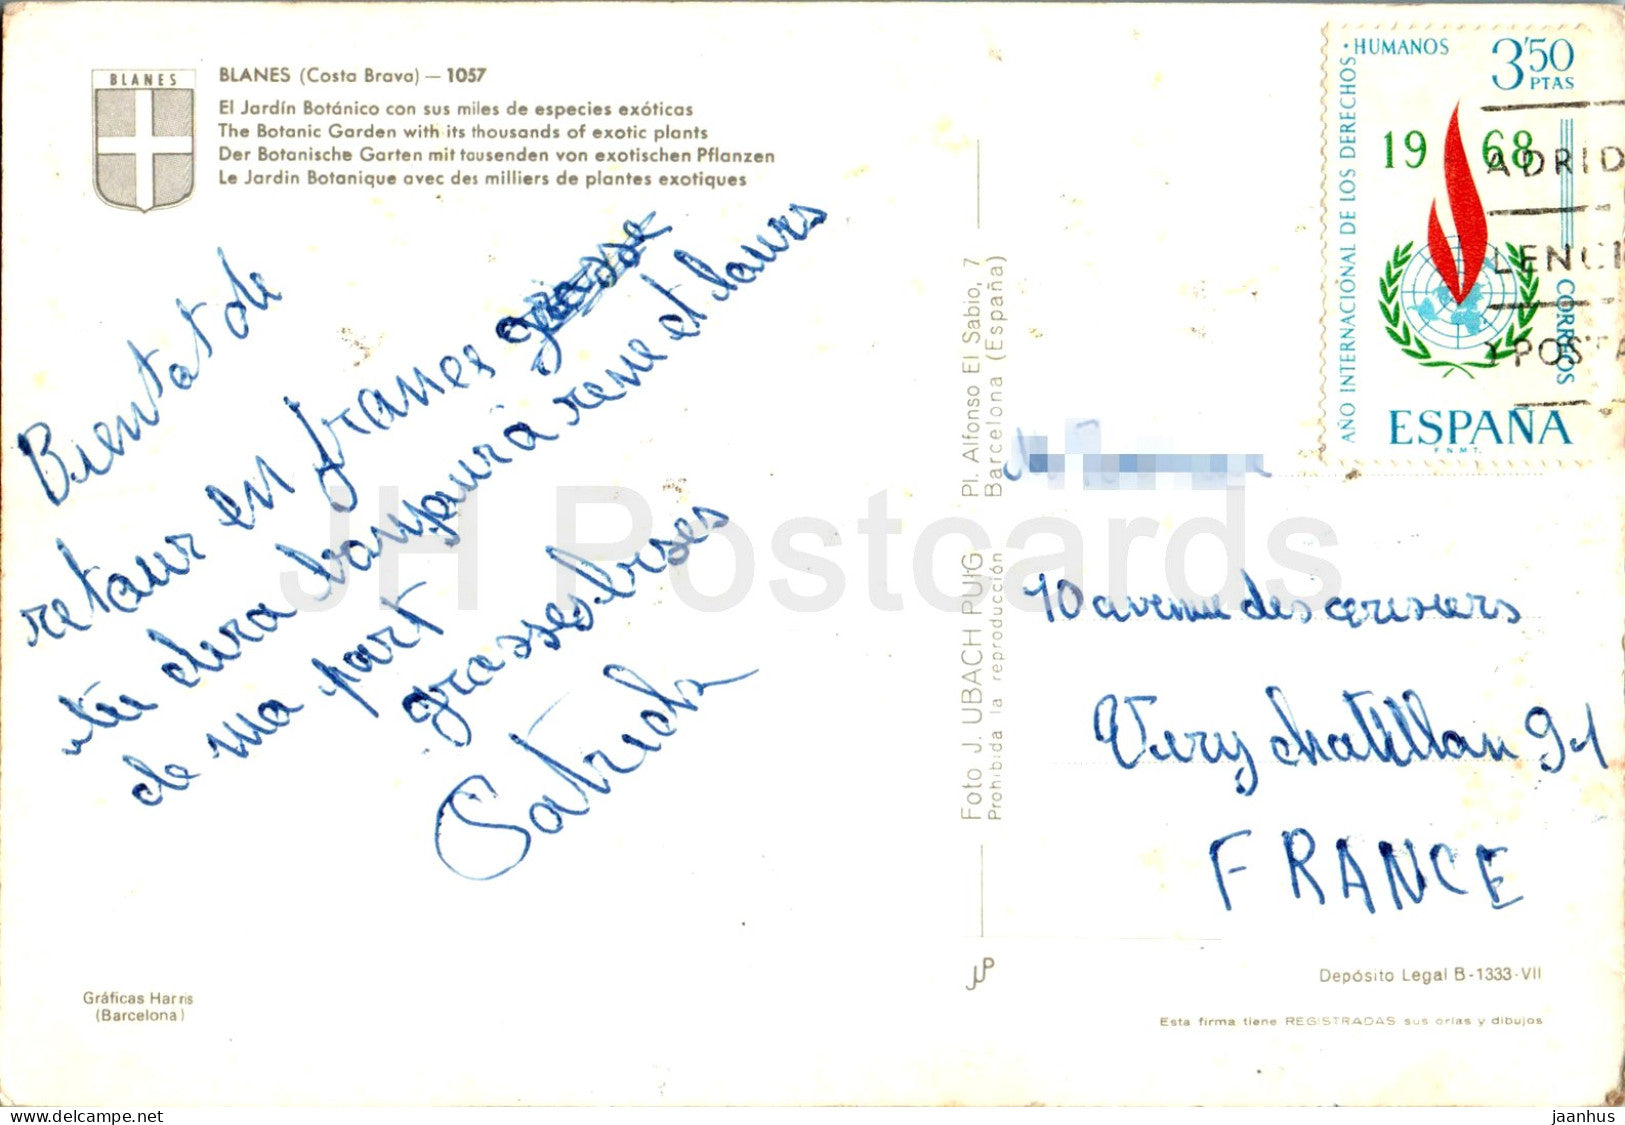 BLANES
BLANES (Costa Brava) — 1057
El Jardín Botánico con sus miles de especies exóticas
The Botanic Garden with its thousands of exotic plants
Der Botanische Garten mit tausenden von exotischen Pflanzen
Le Jardin Botanique avec des milliers de plantes exotiques
Bientat de
retaur en franes
tu dira banjaur à rene et laurs
de ma part
grasses bises
Gráficas Harris
(Barcelona)
Foto J. UBACH PUIG Pl. Alfonso El Sabio, 7
Prohibida la reproducción Barcelona (España)
JP
AÑO INTERNACIONAL DE LOS DERECHOS · HUMANOS
3'50
PTAS
1968
CORREOS
ESPAÑA
F.N.M.T.
ADRID
LENCI
POSTA
10 avenue des cerisiers
Viry chatillan 91
FRANCE
Depósito Legal B-1333-VII
Esta firma tiene REGISTRADAS sus orlas y dibujos
JH Postcards
www.delcampe.net
jaanhus